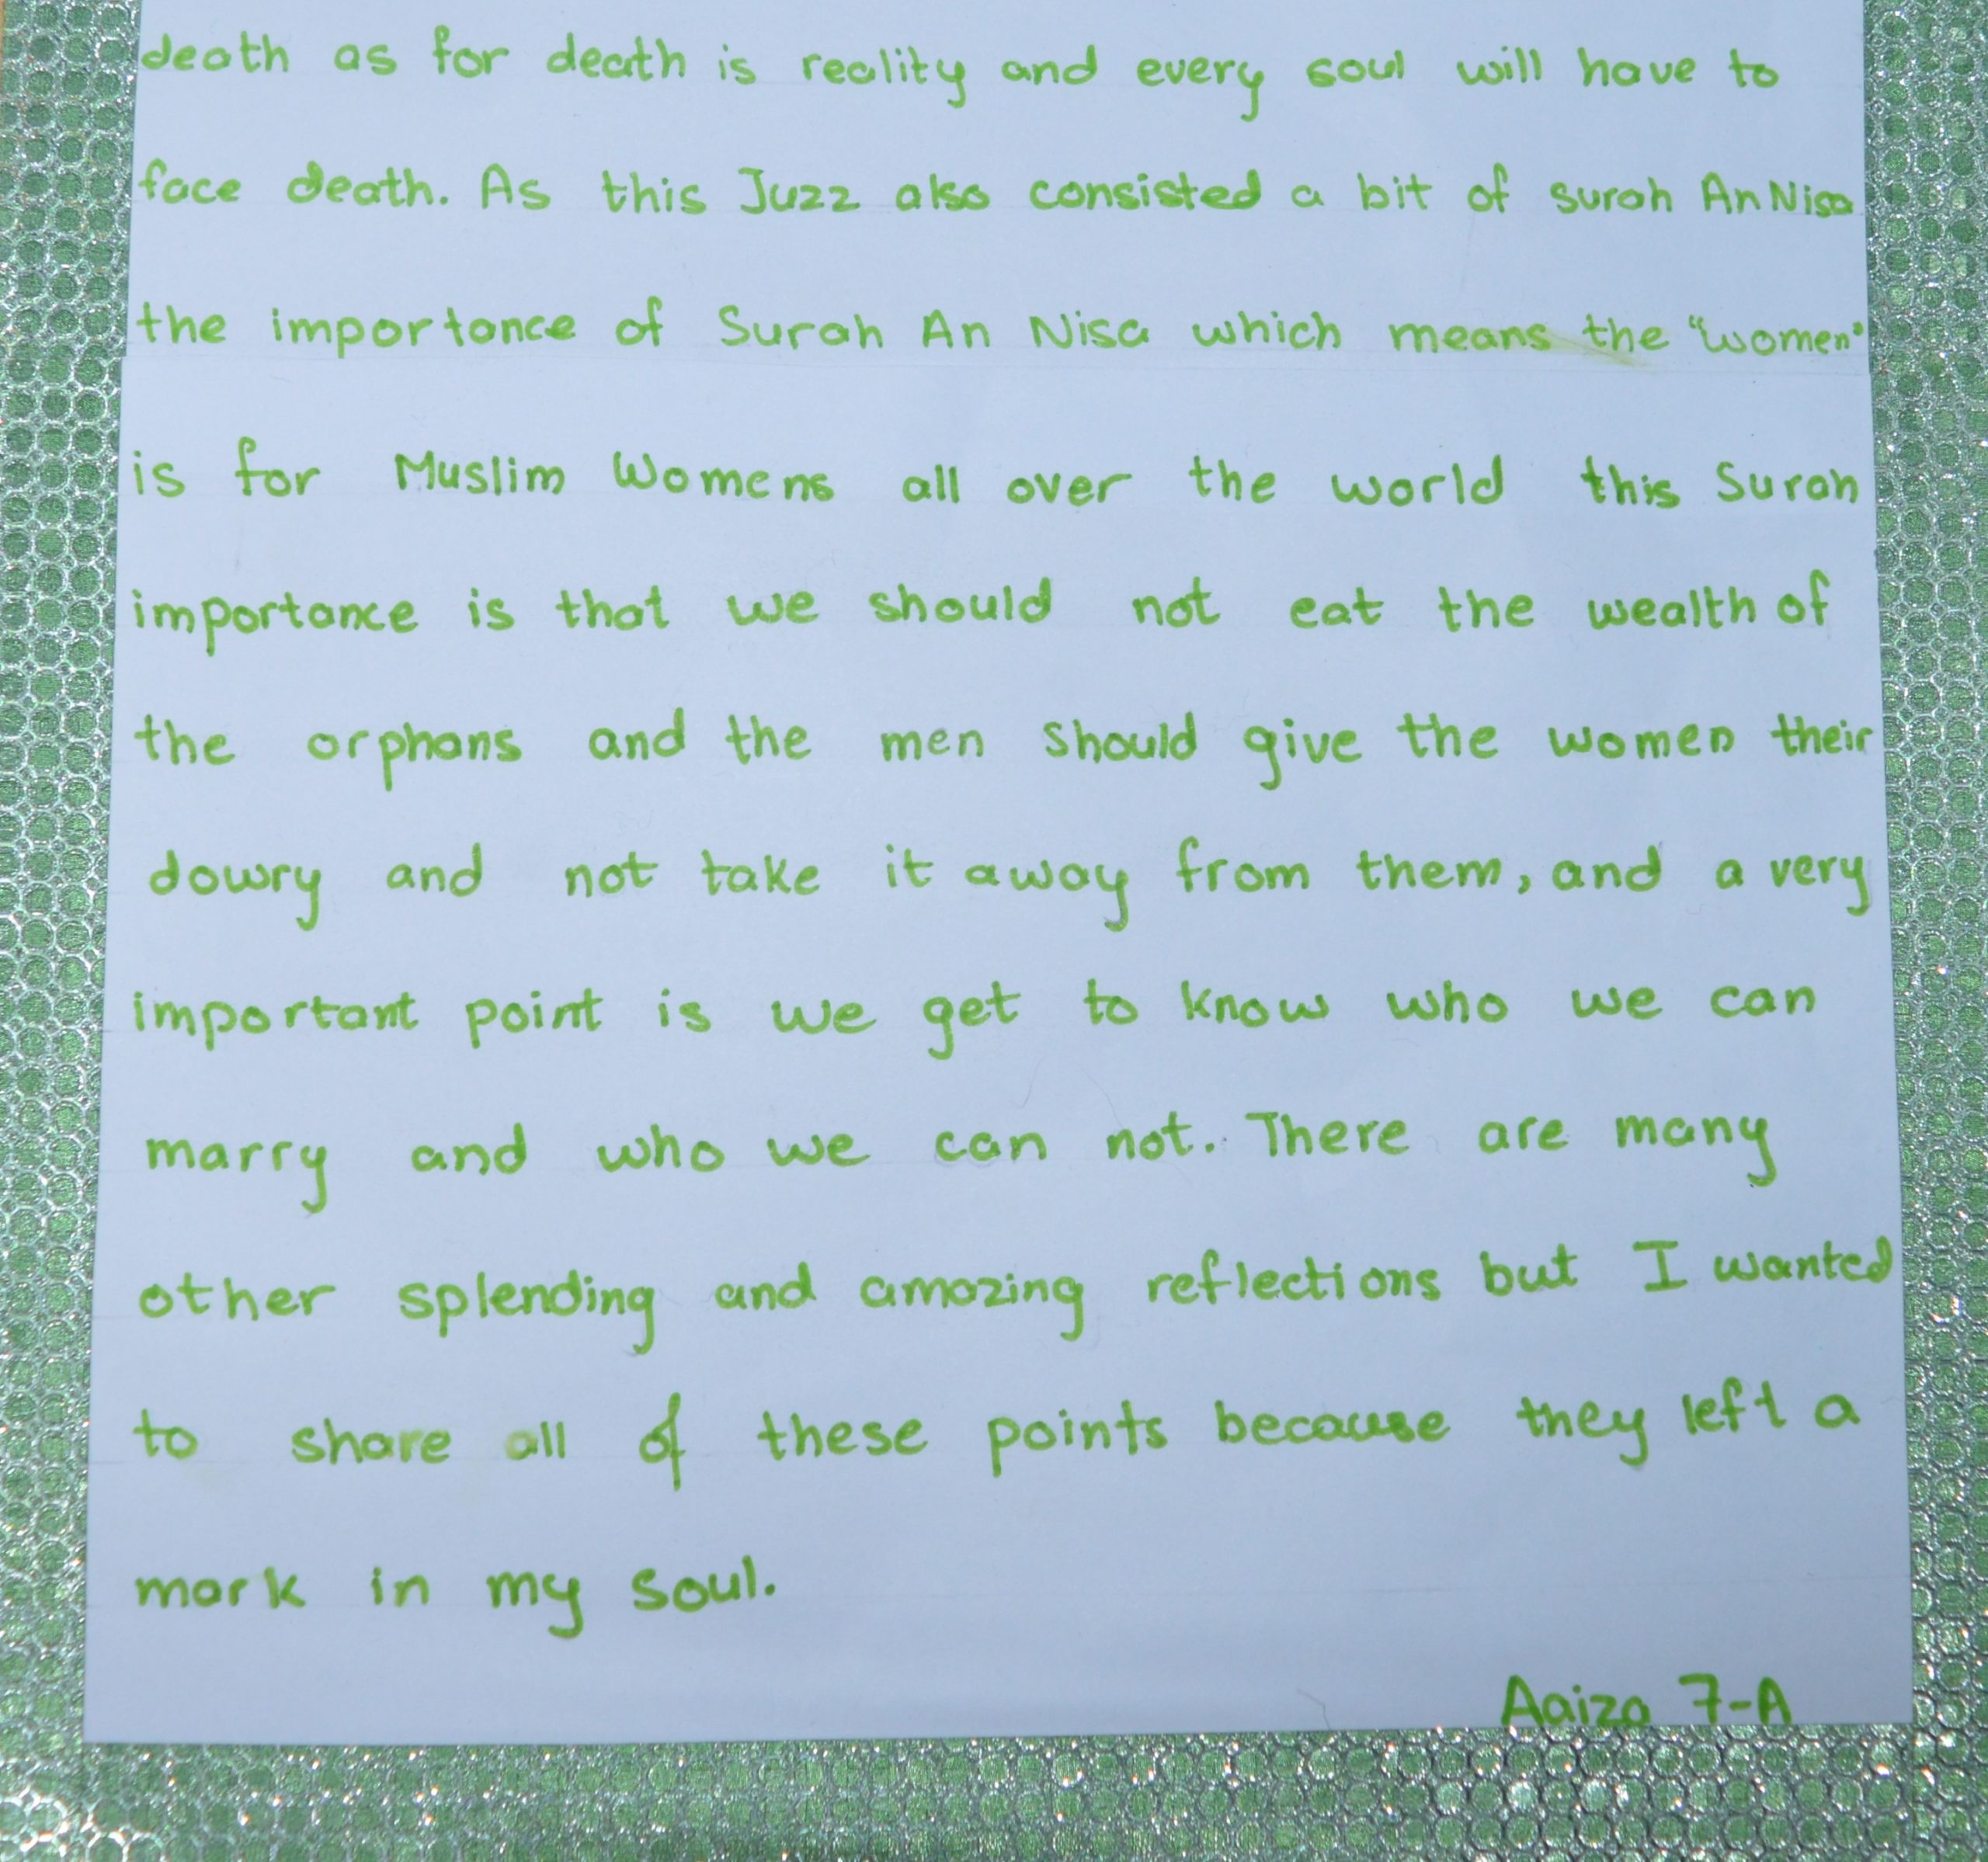 death as for death is reality and every soul will have to
face death. As this Juzz also consisted a bit of surah An Nisa
the importance of Surah An Nisa which means the "women"
is for Muslim Womens all over the world this Surah
importance is that we should not eat the wealth of
the orphans and the men should give the women their
dowry and not take it away from them, and a very
important point is we get to know who we can
marry and who we can not. There are many
other splending and amazing reflections but I wanted
to share all of these points because they left a
mark in my soul.
Aaiza 7-A